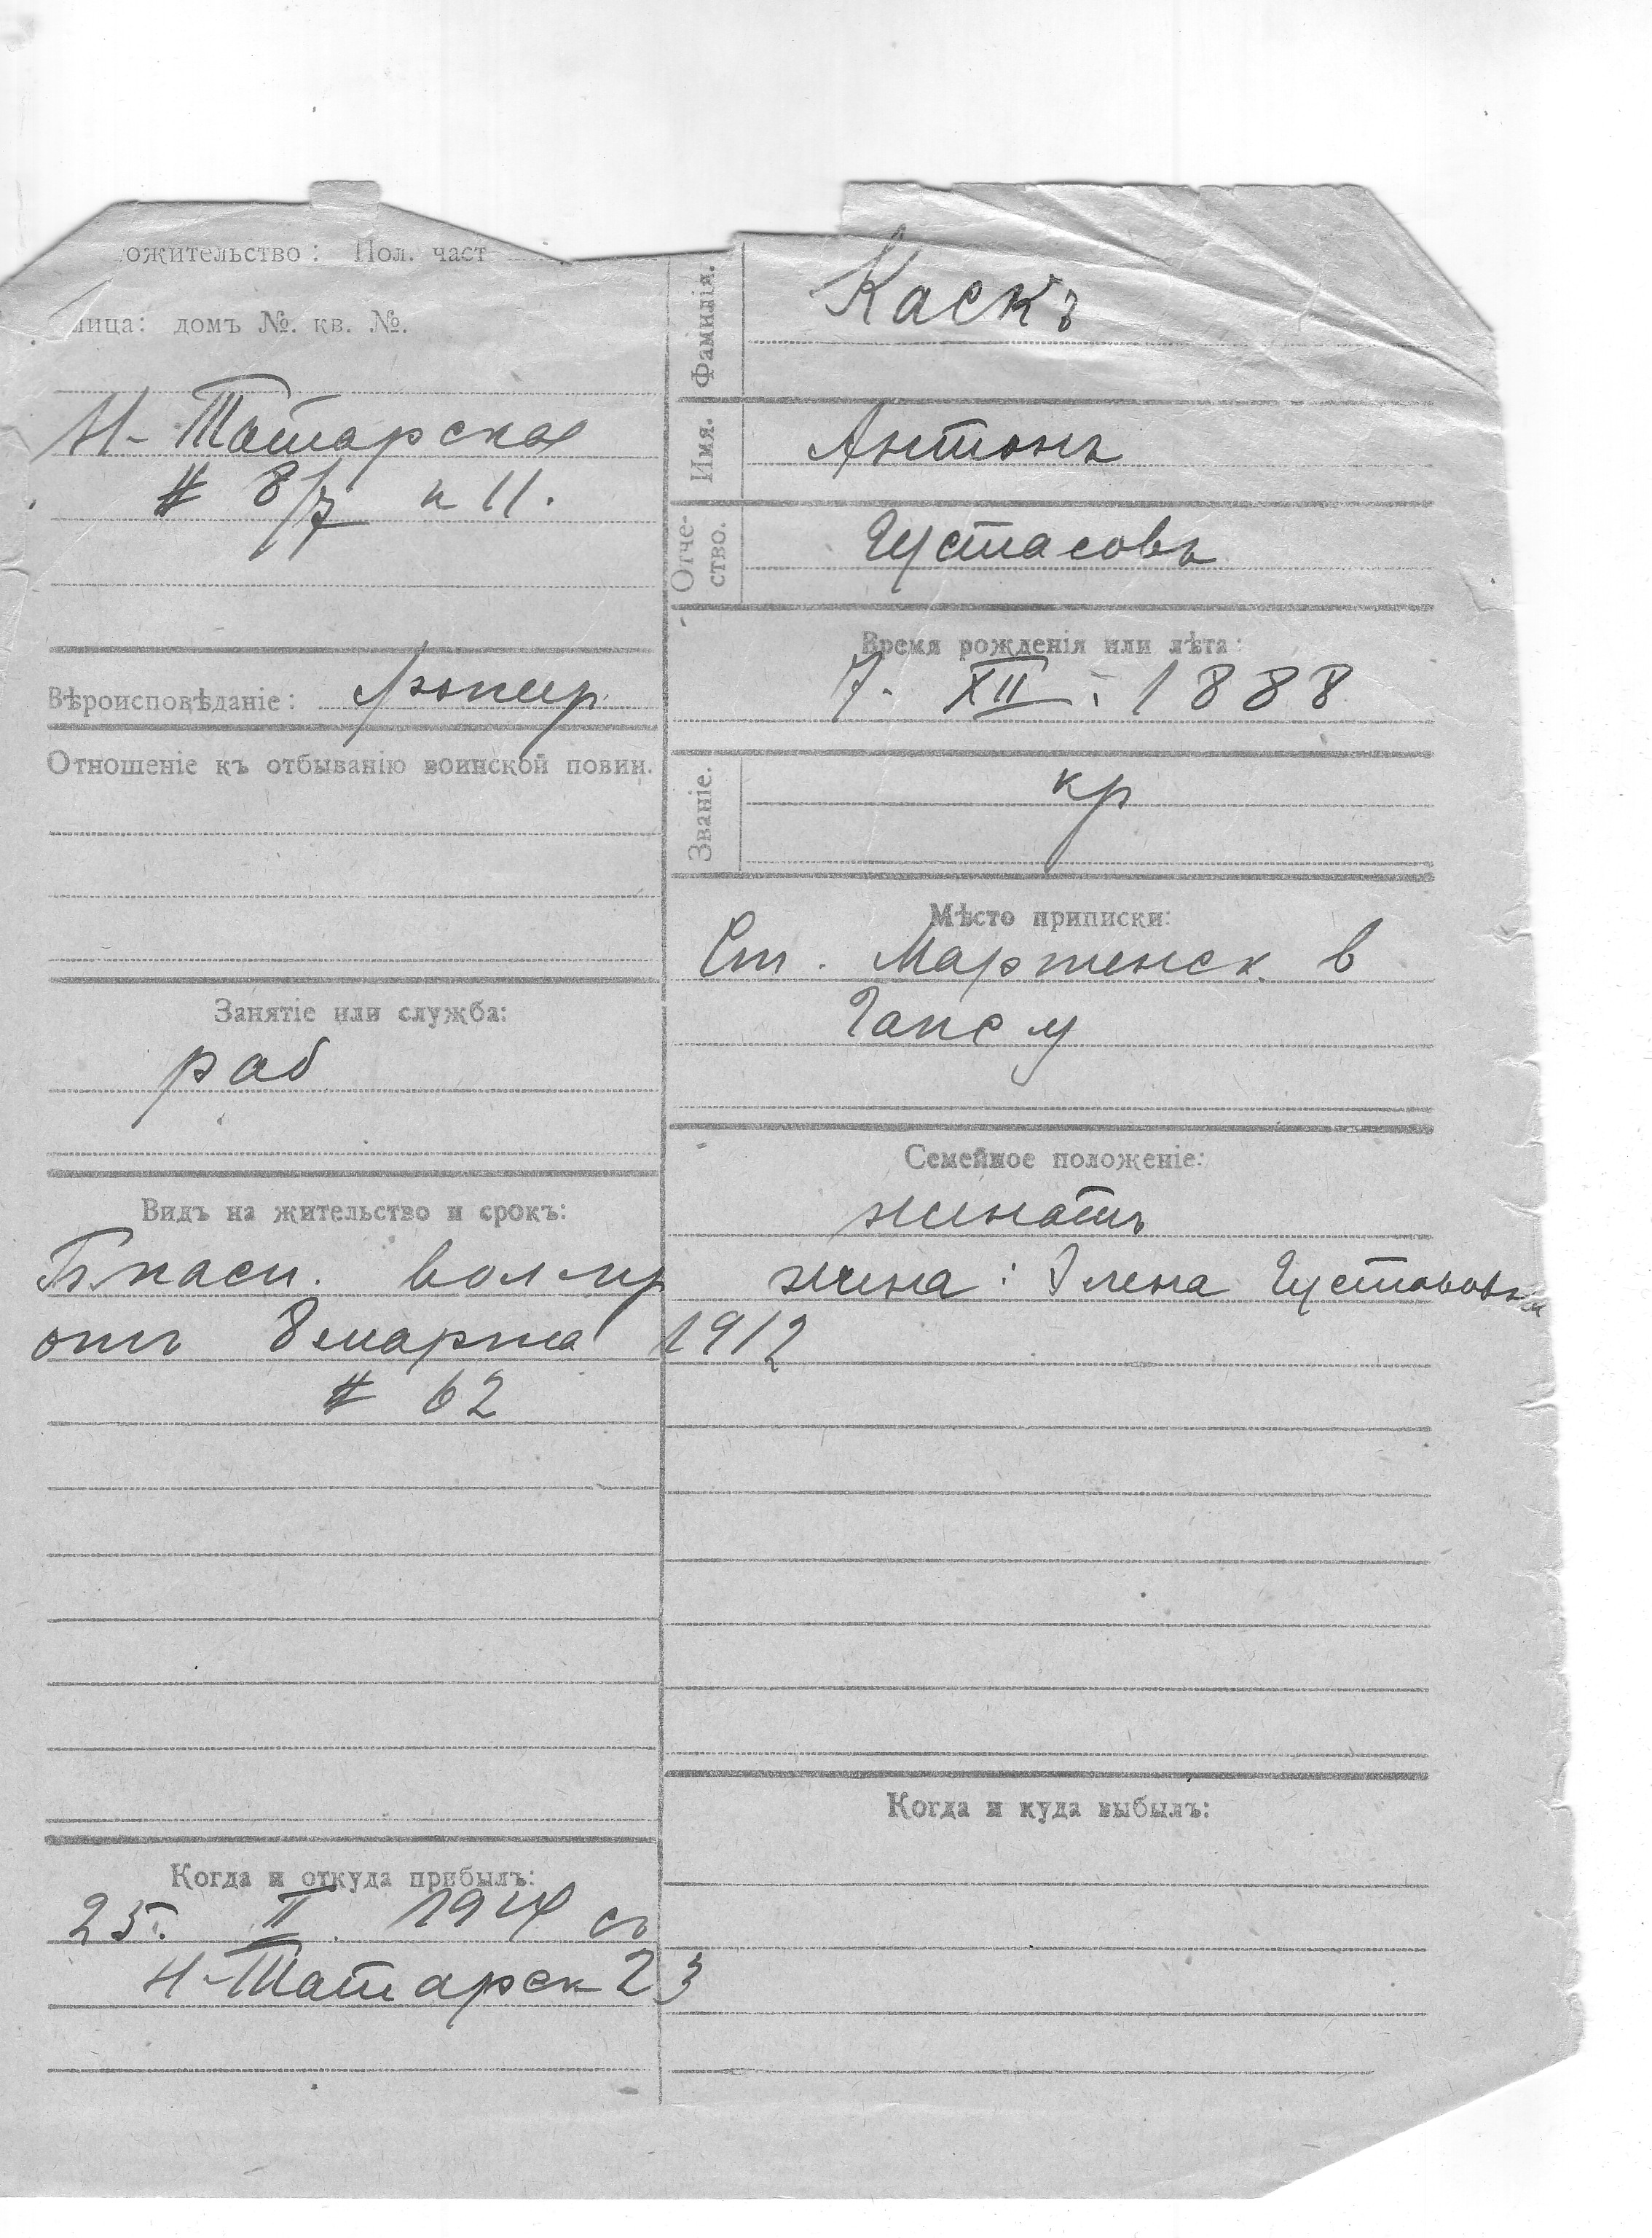 ожительство: Пол. част
лица: домъ №. кв. №.
Н-Татарская
# 8/7 к 11.
Вѣроисповѣданіе:
Отношеніе къ отбыванію воинской повин.
Занятіе или служба:
раб
Видъ на жительство и срокъ:
отъ 8 марта 1912
# 62
Когда и откуда прибылъ:
25. II. 1914 съ
Н-Татарск 23
Фамилія.
Каскъ
Имя.
Антонъ
Отче-
ство.
Густасовъ
Время рожденія или лѣта:
7. XII. 1888
Званіе.
кр
Мѣсто приписки:
Ст. Мартенск в
Гапс у
Семейное положеніе:
женатъ
жена: Элена Густововна
Когда и куда выбылъ: